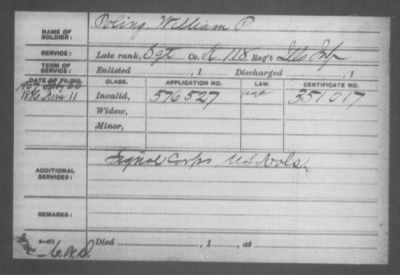 NAME OF SOLDIER: Poling, William P
SERVICE: Late rank, Sgt Co. K, 118 Reg't Ills Inf
TERM OF SERVICE: Enlisted , 1 Discharged , 1
DATE OF FILING. CLASS. APPLICATION NO. LAW. CERTIFICATE NO.
1886 June 11 Invalid, 576527 351017
Widow,
Minor,
ADDITIONAL SERVICES: Signal Corps, U.S. Vols.
REMARKS:
Died , 1 , at